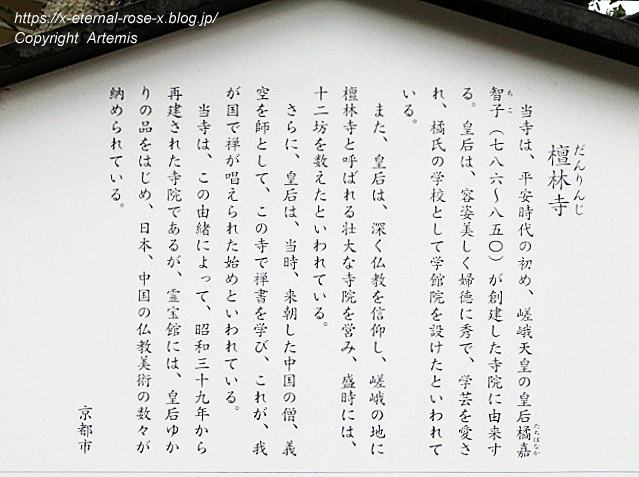 https://x-eternal-rose-x.blog.jp/
Copyright Artemis
だんりんじ
檀林寺
当寺は、平安時代の初め、嵯峨天皇の皇后橘嘉
たちばなか
智子（七八六〜八五〇）が創建した寺院に由来す
ちこ
る。皇后は、容姿美しく婦徳に秀で、学芸を愛さ
れ、橘氏の学校として学館院を設けたといわれて
いる。
また、皇后は、深く仏教を信仰し、嵯峨の地に
檀林寺と呼ばれる壮大な寺院を営み、盛時には、
十二坊を数えたといわれている。
さらに、皇后は、当時、来朝した中国の僧、義
空を師として、この寺で禅書を学び、これが、我
が国で禅が唱えられた始めといわれている。
当寺は、この由緒によって、昭和三十九年から
再建された寺院であるが、霊宝館には、皇后ゆか
りの品をはじめ、日本、中国の仏教美術の数々が
納められている。
京都市